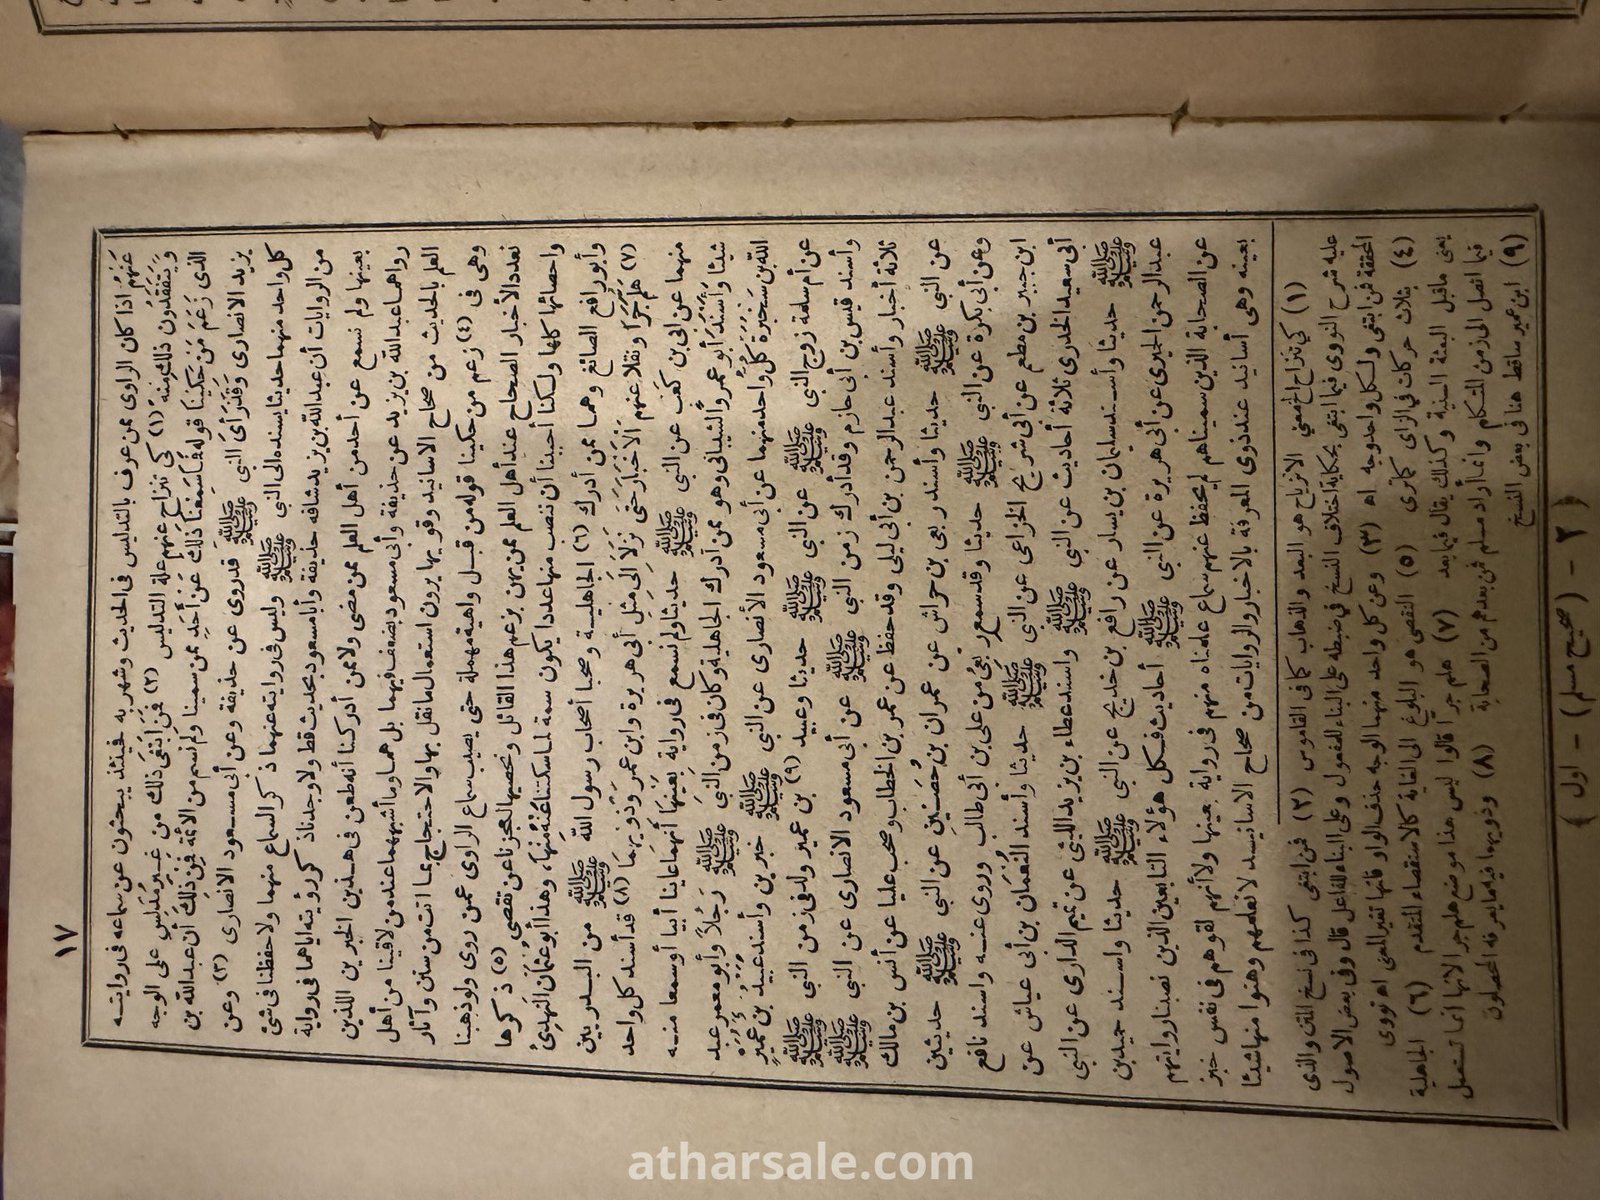 ١٧
عَنْهُمْ اذا كان الراوى ممن عرف بالتدليس فى الحديث وشهر به فحينئذ يبحثون عن سماعه فى روايته
وَيَتَفَقَّدُونَ ذلك منه (١) كى تنزاح عنهم علة التدليس (٢) فمن ابتغى ذلك من غير مدلس على الوجه
الذى زعم من حكينا قوله فما سمعنا ذلك عن أحد ممن سمينا ولم نسم من الأئمة فمن ذلك أن عبدالله بن
يزيد الانصارى وقد رأى النبى صلى الله عليه وسلم قد روى عن حذيفة وعن أبى مسعود الانصارى (٣) وعن
كل واحد منهما حديثا يسنده الى النبى صلى الله عليه وسلم وليس فى روايته عنهما ذكر السماع منهما ولا حفظنا فى شئ
من الروايات أن عبدالله بن يزيد شافه حذيفة وأبا مسعود بحديث قط ولا وجدنا ذكر رؤيته اياهما فى رواية
بعينها ولم نسمع عن أحد من أهل العلم ممن مضى ولا ممن أدركنا أنه طعن فى هذين الخبرين اللذين
رواهما عبدالله بن يزيد عن حذيفة وأبى مسعود بضعف فيهما بل هما وما أشبههما عند من لاقينا من أهل
العلم بالحديث من صحاح الاسانيد وقويها يرون استعمال ما نقل بها والاحتجاج بما اتت من سنن وآثار
وهى فى (٤) زعم من حكينا قوله من قبل واهية مهملة حتى يصيب سماع الراوى عمن روى ولو ذهبنا
نعدد الأخبار الصحاح عند أهل العلم ممن يهن بزعم هذا القائل ونحصيها لعجزنا عن تقصى (٥) ذكرها
واحصائها كلها ولكنا أحببنا أن ننصب منها عددا يكون سمة لما سكتنا عنه منها، وهذا أبو عثمان النهدى
وأبو رافع الصائغ وهما ممن أدرك (٦) الجاهلية وصحبا أصحاب رسول الله صلى الله عليه وسلم من البدريين
(٧) هلم جرا ونقلا عنهم الأخبار حتى نزلا الى مثل أبى هريرة وابن عمر وذويهما (٨) قد أسند كل واحد
منهما عن ابى بن كعب عن النبى صلى الله عليه وسلم حديثا ولم نسمع فى رواية بعينها أنهما عاينا أبيا أو سمعا منه
شيئا وأسند أبو عمرو الشيبانى وهو ممن أدرك الجاهلية وكان فى زمن النبى صلى الله عليه وسلم رجلا وأبو معمر عبد
الله بن سخبرة كل واحد منهما عن أبى مسعود الأنصارى عن النبى صلى الله عليه وسلم خبرين وأسند عبيد بن عمير
عن أم سلمة زوج النبى صلى الله عليه وسلم عن النبى صلى الله عليه وسلم حديثا وعبيد (٩) بن عمير ولد فى زمن النبى صلى الله عليه وسلم
وأسند قيس بن أبى حازم وقد أدرك زمن النبى صلى الله عليه وسلم عن أبى مسعود الانصارى عن النبى صلى الله عليه وسلم
ثلاثة أخبار وأسند عبد الرحمن بن أبى ليلى وقد حفظ عن عمر بن الخطاب وصحب عليا عن أنس بن مالك
عن النبى صلى الله عليه وسلم حديثا وأسند ربعى بن حراش عن عمران بن حصين عن النبى صلى الله عليه وسلم حديثين
وعن أبى بكرة عن النبى صلى الله عليه وسلم حديثا وقد سمع ربعى من على بن أبى طالب وروى عنه واسند نافع
ابن جبير بن مطعم عن أبى شريح الخزاعى عن النبى صلى الله عليه وسلم حديثا وأسند النعمان بن أبى عياش عن
أبى سعيد الخدرى ثلاثة أحاديث عن النبى صلى الله عليه وسلم واسند عطاء بن يزيد الليثى عن تميم الدارى عن النبى
صلى الله عليه وسلم حديثا وأسند سليمان بن يسار عن رافع بن خديج عن النبى صلى الله عليه وسلم حديثا واسند حميد بن
عبد الرحمن الحميرى عن أبى هريرة عن النبى صلى الله عليه وسلم أحاديث فكل هؤلاء التابعين الذين نصبنا روايتهم
عن الصحابة الذين سميناهم لم يحفظ عنهم سماع علمناه منهم فى رواية بعينها ولا أنهم لقوهم فى نفس خبر
بعينه وهى أسانيد عند ذوى المعرفة بالاخبار والروايات من صحاح الاسانيد لا نعلمهم وهنوا منها شيئا
(١) كى تنزاح المعنى الانزياح هو البعد والذهاب كما فى القاموس (٢) فمن ابتغى كذا فى نسخ المتن والذى
عليه شرح النووى فيما ابتغى بحكاية اختلاف النسخ فى ضبطه على البناء للمفعول وعلى البناء للفاعل قال وفى بعض الاصول
المحققة فمن ابتغى ولكل واحد وجه اه (٣) وعن كل واحد منهما الوجه حذف الواو فانها تغير المعنى اه نووى
(٤) بثلاث حركات فى الزاى كما ترى (٥) التقصى هو البلوغ الى الغاية كالاستقصاء المتقدم (٦) الجاهلية
يعنى ما قبل البعثة السنية وكذلك يقال فيما بعد (٧) هلم جرا قالوا ليس هذا موضع هلم جرا لانها انما تستعمل
فيما اتصل الى زمن المتكلم وانما أراد مسلم فمن بعدهم من الصحابة (٨) وذويهما فيه ما يعرفه المحصلون
(٩) ابن عمير ساقط هنا فى بعض النسخ
( ٢ - (صحيح مسلم) - اول )
atharsale.com